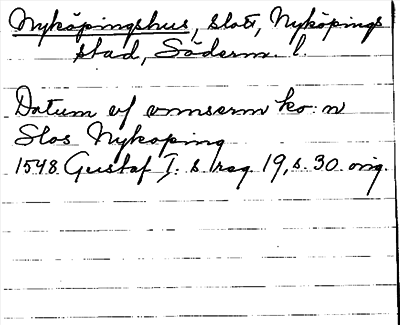 Nyköpingshus, slott, Nyköpings
stad, Söderm. l.
Datum vf vmserm ko: n
Slos Nykoping
1548 Gustaf I:s reg. 19, s. 30. orig.